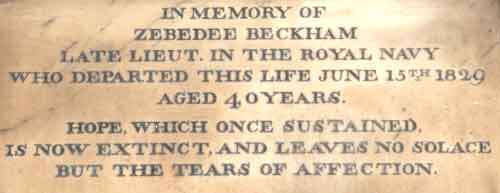 IN MEMORY OF
ZEBEDEE BECKHAM
LATE LIEUT. IN THE ROYAL NAVY
WHO DEPARTED THIS LIFE JUNE 15TH 1829
AGED 40 YEARS.
HOPE, WHICH ONCE SUSTAINED,
IS NOW EXTINCT, AND LEAVES NO SOLACE
BUT THE TEARS OF AFFECTION.